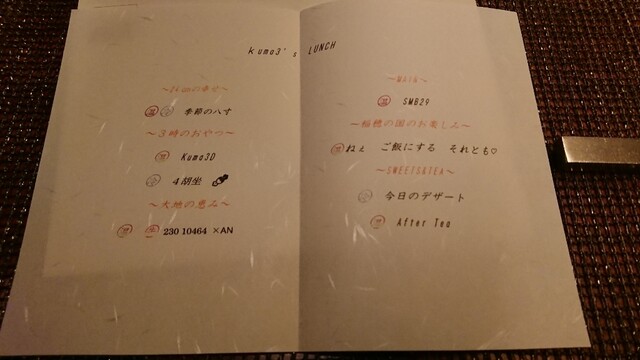 Kumo3's LUNCH
季節のハす
～3時のおやつ～
温 Kumo3D
冷 4胡坐
～大地の恵み～
温 生 230 10464 ×AN
～MAIN～
温 SMB29
～瑞穂の国のお楽しみ～
温 ねぇ ご飯にする それとも♡
～SWEETS&TEA～
冷 今日のデザート
温 After Tea